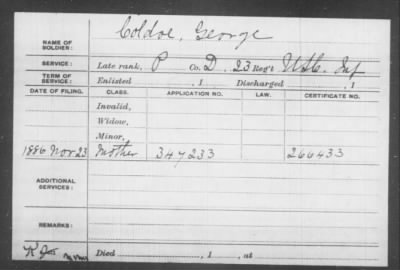 NAME OF SOLDIER: Coldoe, George
SERVICE: Late rank, P Co. D, 23 Reg't U.S.C. Inf
TERM OF SERVICE: Enlisted , 1 Discharged , 1
DATE OF FILING. CLASS. APPLICATION NO. LAW. CERTIFICATE NO.
Invalid,
Widow,
Minor,
1886 Nov 23 Mother 347233 266433
ADDITIONAL SERVICES:
REMARKS:
Died , 1 , at